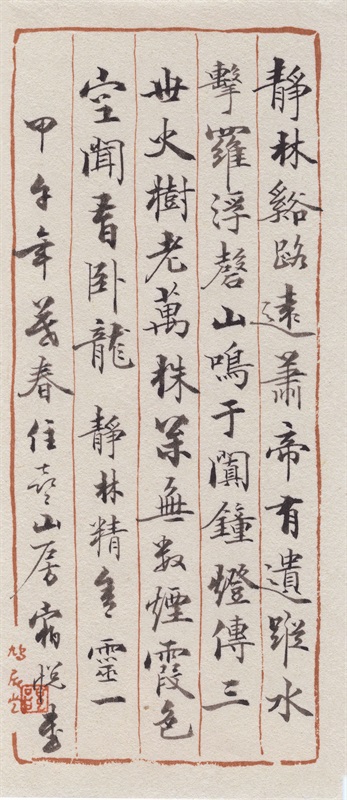 靜林谿路遠蕭帝有遺蹤水
擊羅浮磬山鳴于闐鐘燈傳三
世火樹老萬株枩無数煙霞色
空聞昔卧龍 靜林精舍 靈一
甲午年暮春住喜山房霜悅書
鳩居堂